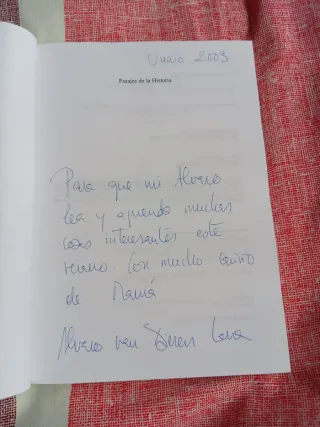 Junio 2003
Pasajes de la Historia
Para que mi Alvaro
lea y aprenda muchas
cosas interesantes este
verano. Con mucho cariño
de Mamá
Alvaro van